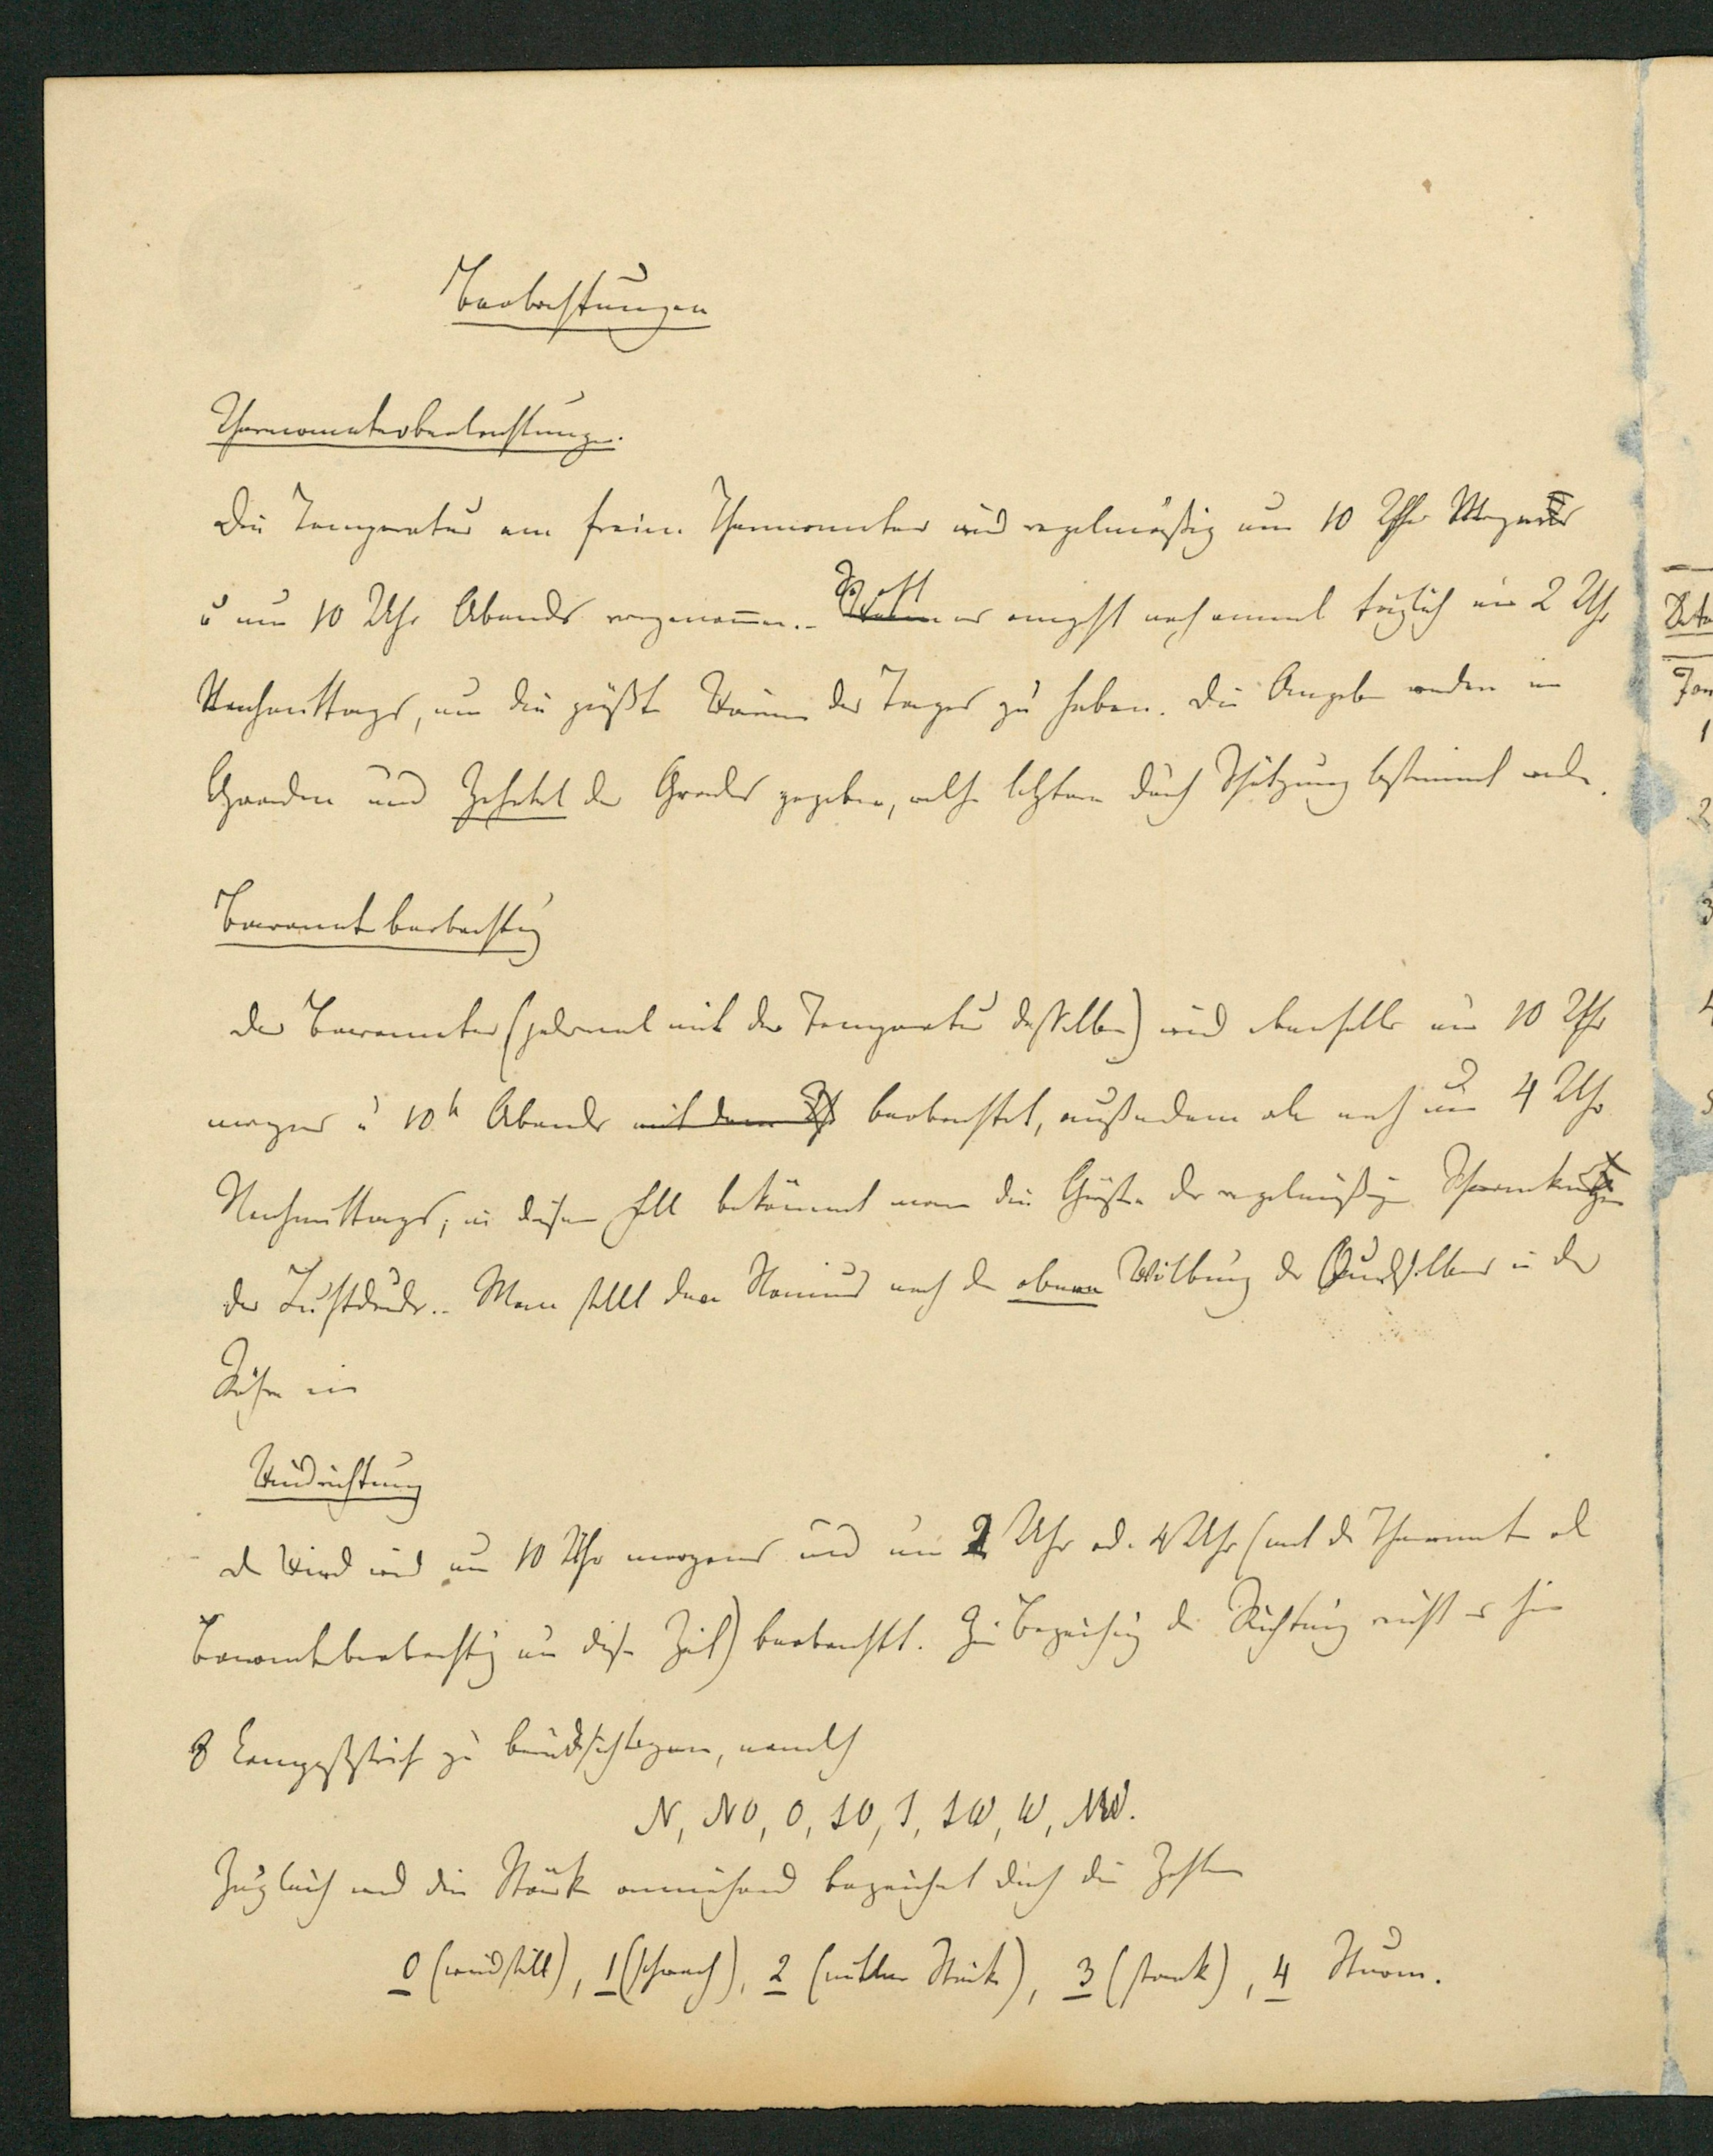 Beobachtungen
Thermometerbeobachtungen.
Die Temperatur am freien Thermometer wird regelmäßig um 10 Uhr Morgens
u um 10 Uhr Abends vorgenommen.- So oft es angeht noch einmal täglich um 2 Uhr
Nachmittags, um die größte Wärme des Tages zu haben. Die Angaben werden in
Graden und Zehntel des Grades gegeben, welche letztere durch Schätzung bestimmt werden.
Barometerbeobachtung
Der Barometer (jedesmal mit der Temperatur desselben) wird ebenfalls um 10 Uhr
morgens u 10h Abends mit dem beobachtet, außerdem aber noch um 4 Uhr
Nachmittags; in diesem Fall bekömmt man die Größe der regelmäßigen Schwankungen
des Luftdrucks.- Man stellt den Nonius nach der oberen Wölbung des Quecksilbers in der
Röhre ein
Windrichtung
Der Wind wird um 10 Uhr morgens und um 2 Uhr od. 4 Uhr (mit der Thermomet od
Barometerbeobachtung um diese Zeit) beobachtet. Zur Bezeichnung der Richtung reicht es hin
8 Compaßstriche zu berücksichtigen, nämlich
N, NO, O, SO, S, SW, W, NW.
Zugleich wird die Stärke annähernd bezeichnet durch die Zahlen
0 (windstill), 1 (schwach), 2 (mittlere Stärke), 3 (stark), 4 Sturm.
Jan
1
2
3
4
5